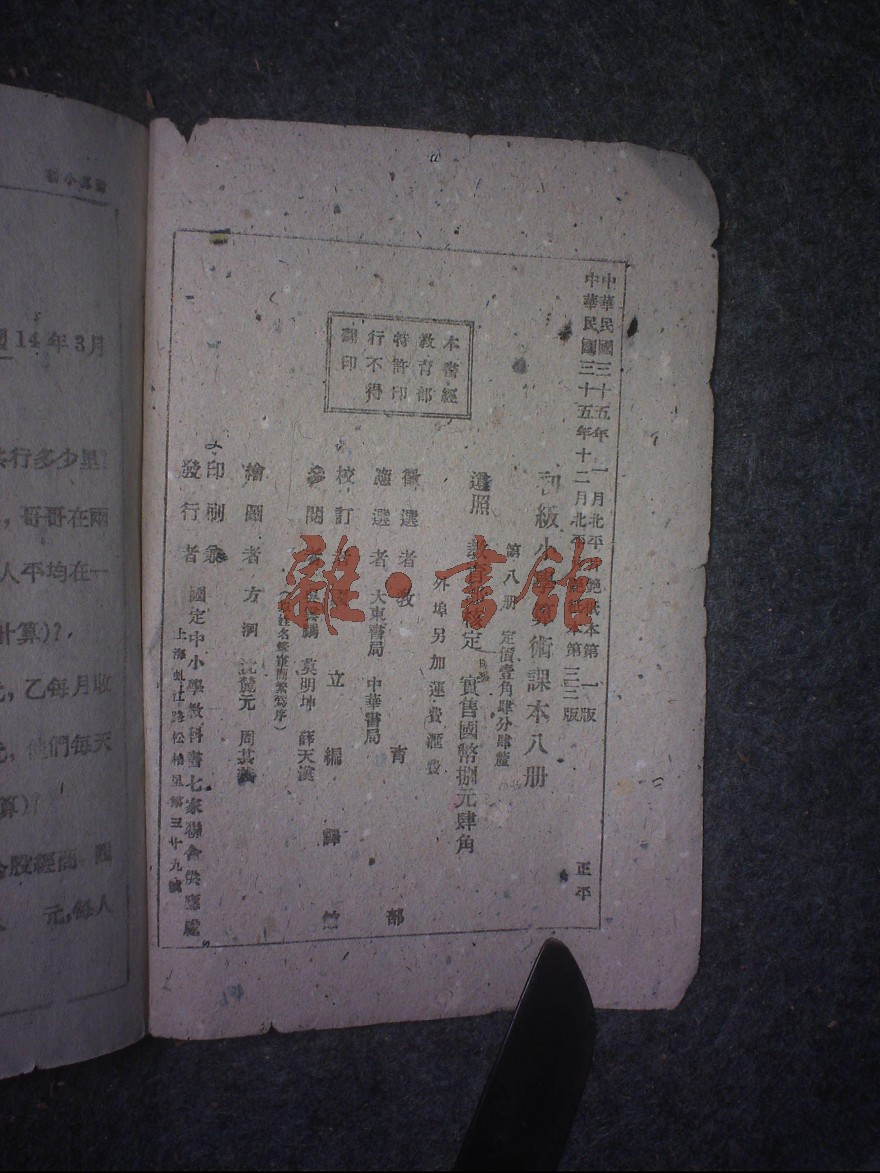 中華民國三十五年一月北平
紙本第一版
中華民國三十五年十二月北平
紙本第三二版
正平
級小
術課本八册
第八册
定價壹角肆分肆釐
遵照
教育
定
實售國幣捌元肆角
外埠另加運費滙費
徵選者
教育部
應選者
大東書局
中華書局
校訂者
立編譯館
參閱
莫明坤
薛天漢
繪圖者
方洞
沈
元
周其
印刷
發行者
國定中小學教科書七家聯合供應處
上海虹江路松柏里第三十九號
本書經
教育部
特許印
行不得
翻印
雜·書館
14年3月
行多少里?
,哥哥在兩
人平均在一
計算)?
元,乙每月收
元,他們每天
算)?
合股經商
元,每人